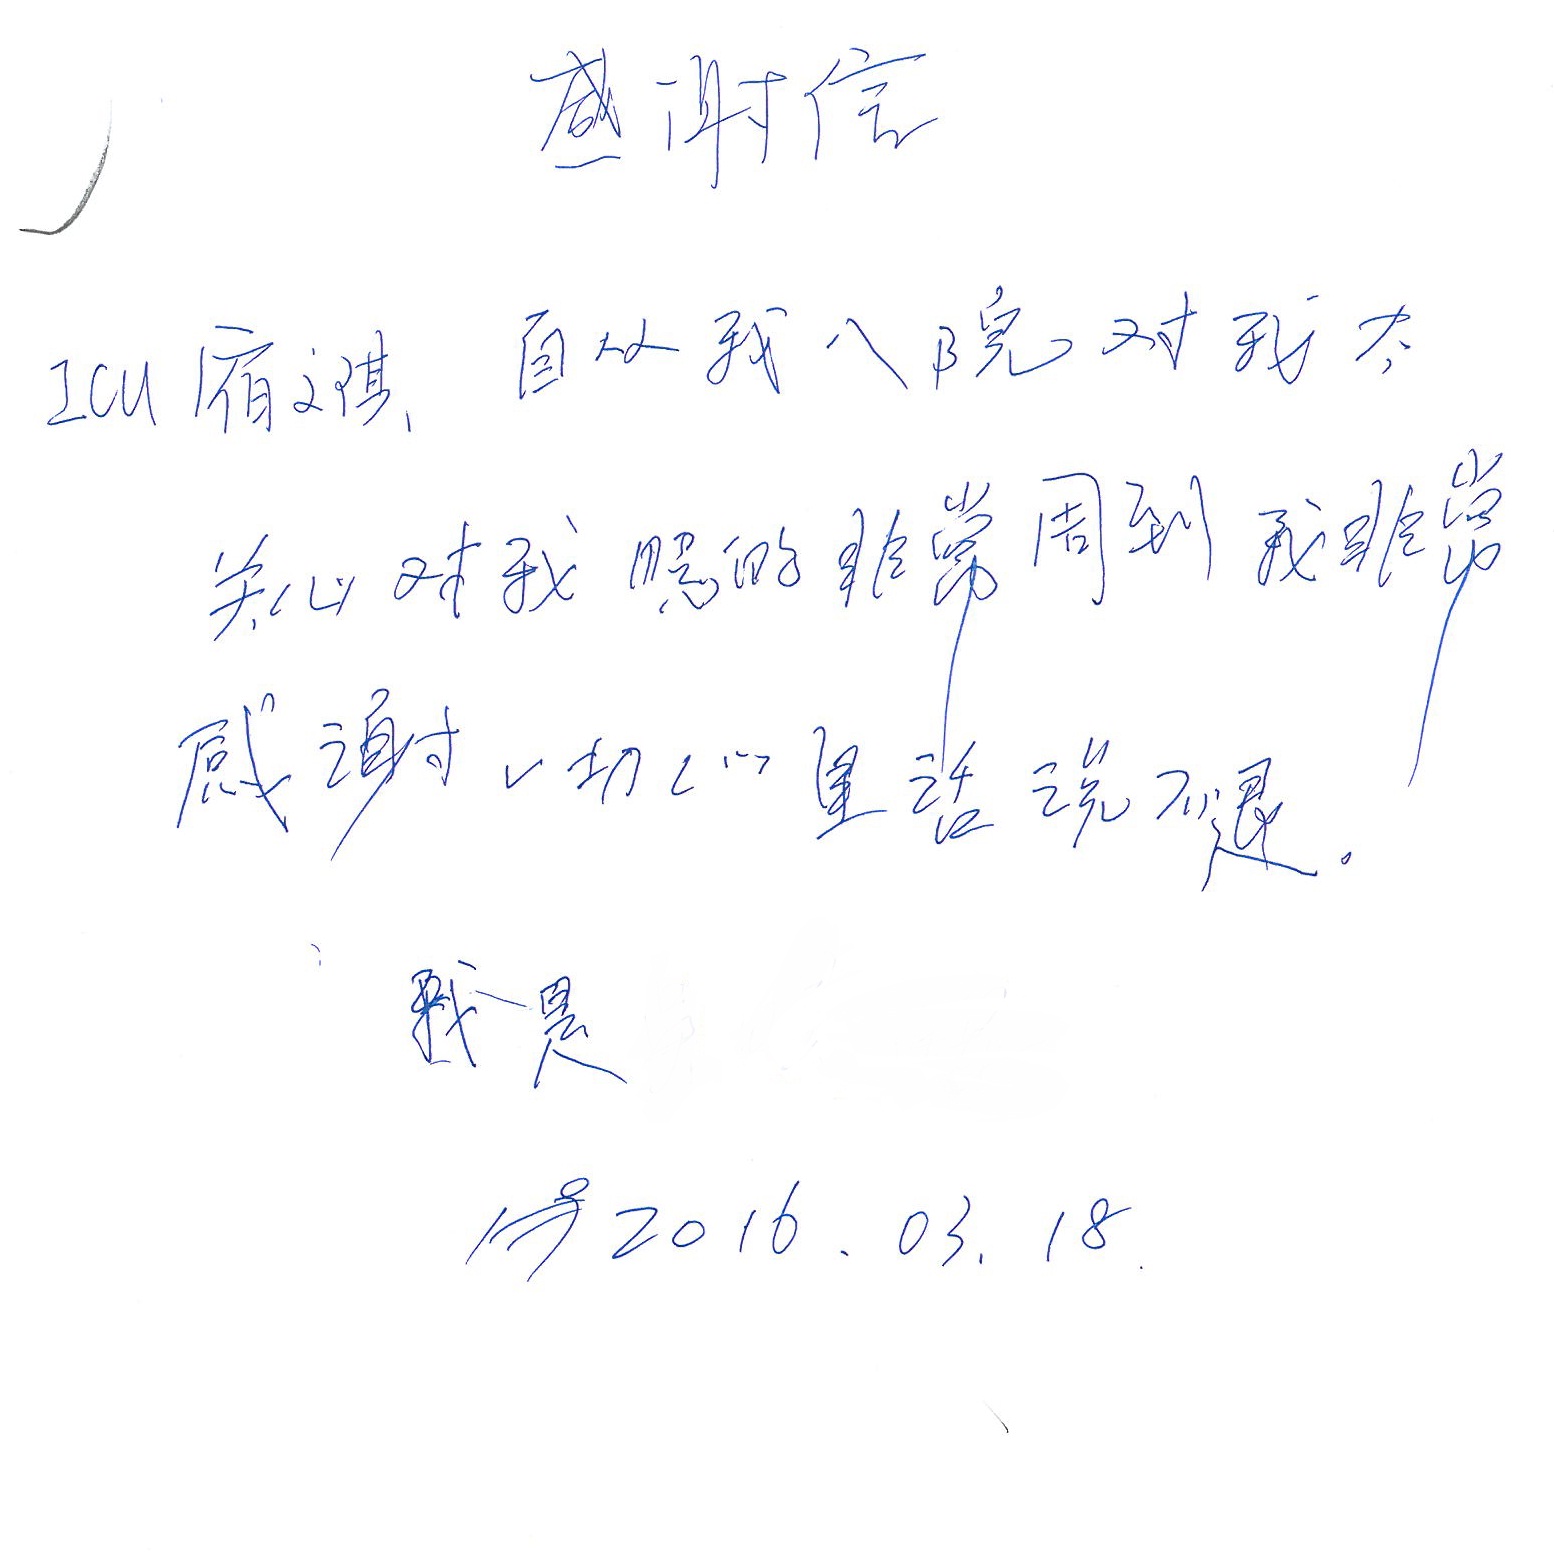 感谢信
ICU 宿文琪、自从我入院对我太
关心对我照的非常周到我非常
感谢一切心里话说不退。
我是
1号2016.03.18.